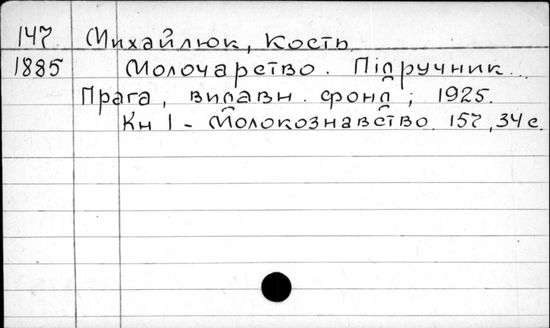 147 Михайлюк, Кость
1885 Молочарство. Підручник...
Прага, видавн. фонд; 1925.
Кн 1 - Молокознавство. 157, 34 с.